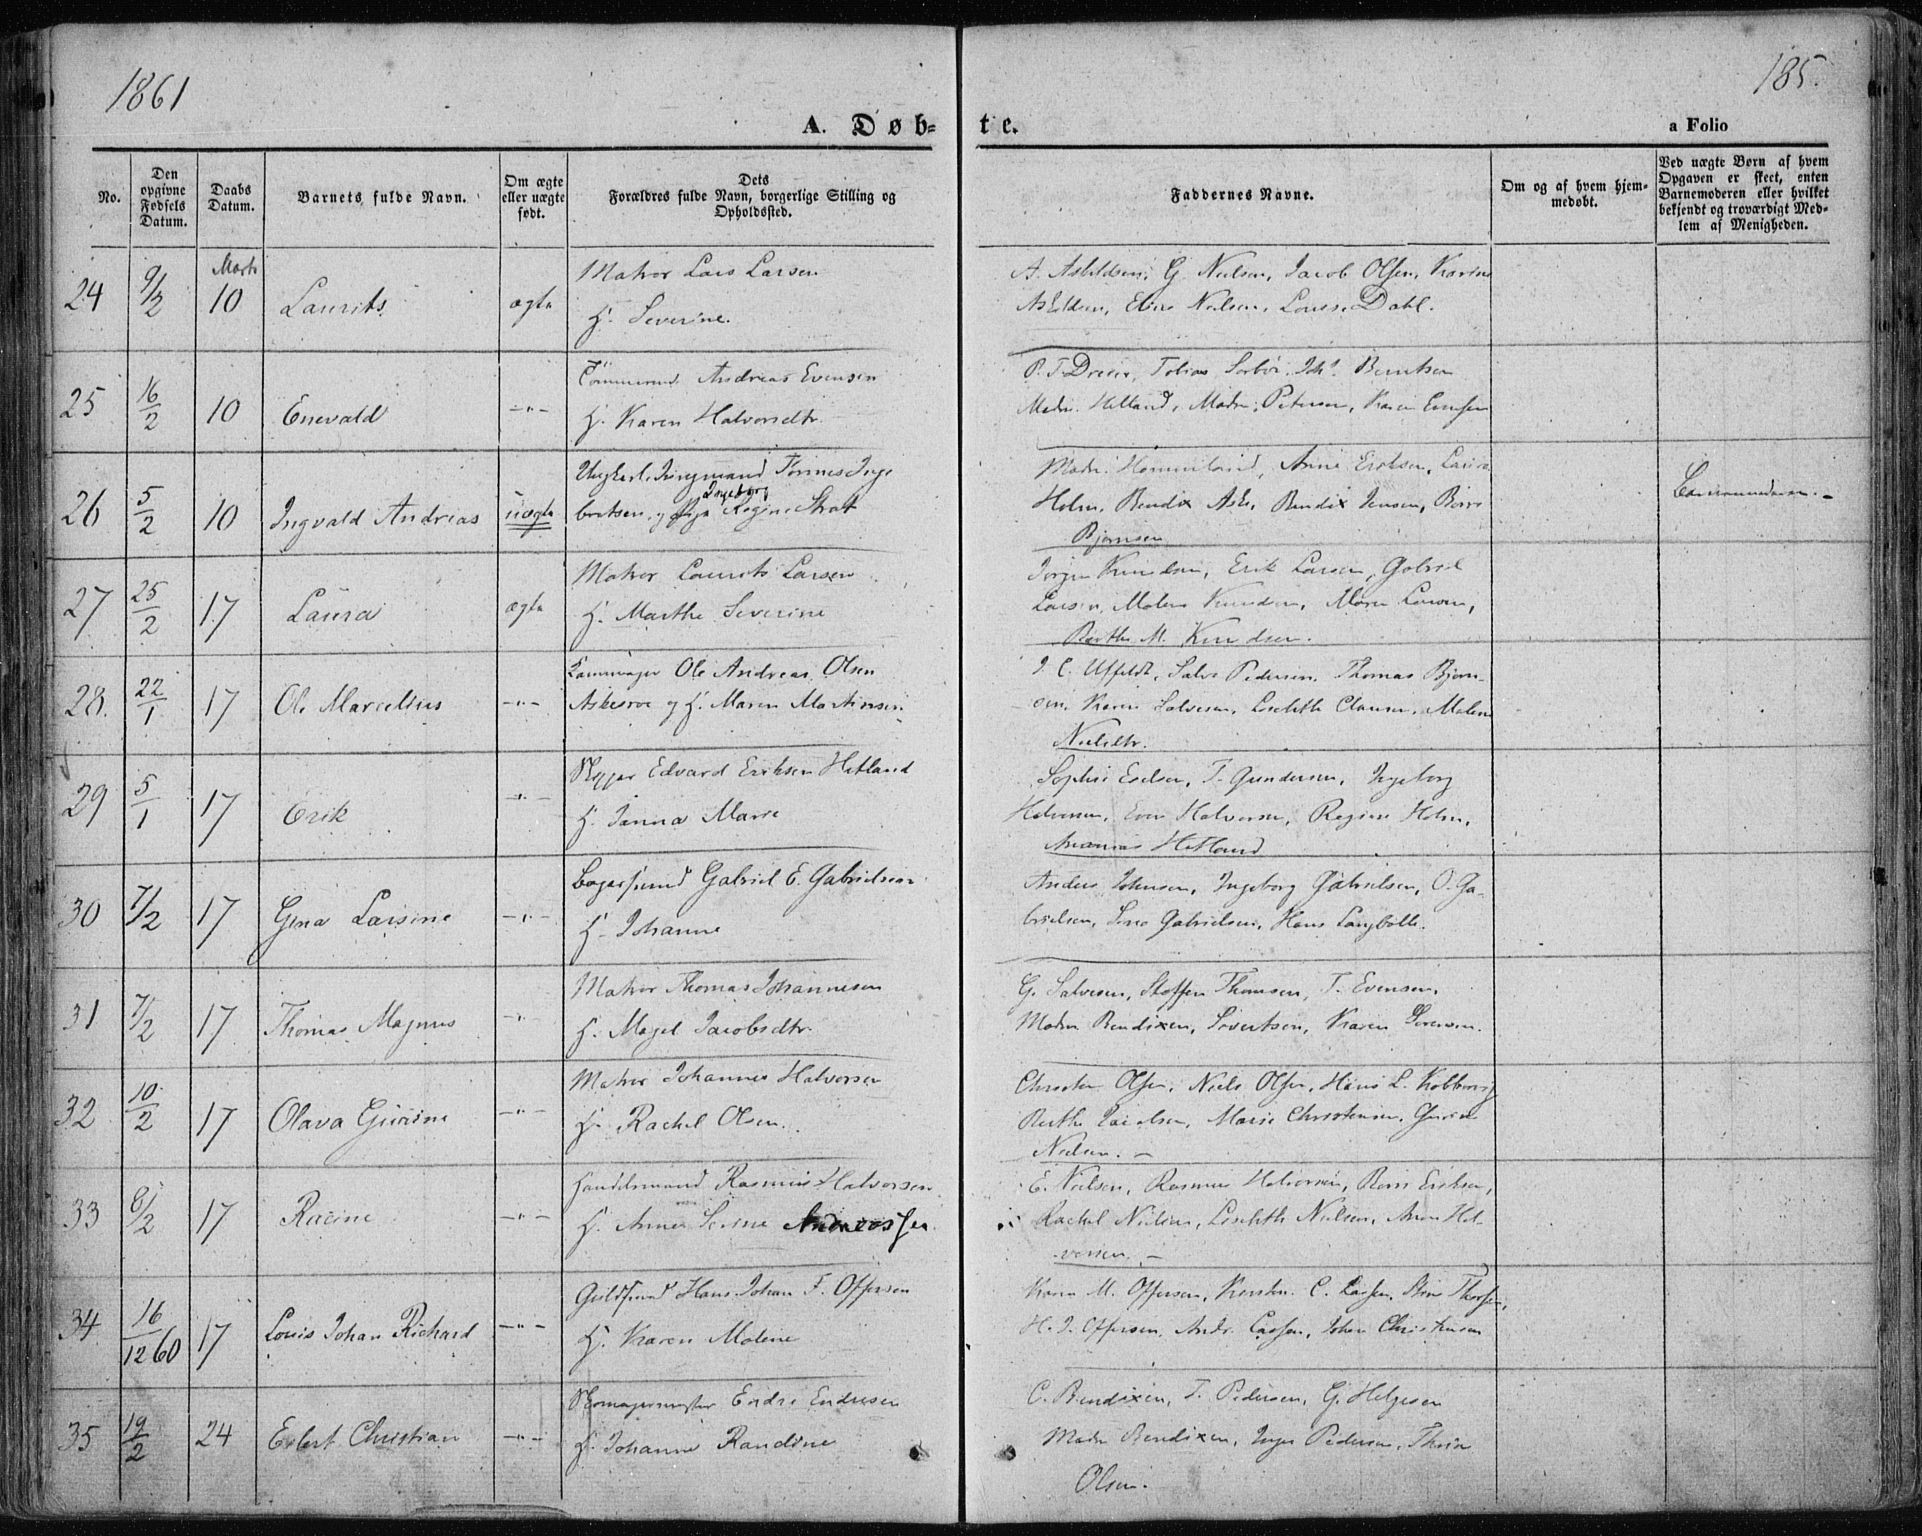 1861
185.
A. Døb-
te.
a Folio
No.
Den opgivne Fødsels Datum.
Daabs Datum.
Barnets fulde Navn.
Om ægte eller uægte født.
Dets Forældres fulde Navn, borgerlige Stilling og Opholdssted.
Faddernes Navne.
Om og af hvem hjemmedøbt.
Ved uægte Børn af hvem Opgaven er skeet, enten Barnemoderen eller hvilket bekjendt og troværdigt Medlem af Menigheden.
24 9/2 Marts 10 Laurits ægte Matros Lars Larsen
H. Severine.
G. Nielsen, Jacob Olsen, Karine
Eline Nielsen, Louise Dahl.
25 16/2 10 Enevald -"- Tømmermd. Andreas Evensen
H. Karen Halvorsdtr.
Tobias Berntsen
Madm. Hetland, Madm. Petersen, Karen Evensen
26 5/2 10 Ingvald Andreas uægte Ungkarl Tønnes Inge
bretsen og Pige Ingeborg Regine
Anne Eriksen, Laura
Holm, Bendix Bendix Jensen, Børre
Bjørnsen
Barnemoderen.-
27 25/2 17 Laura ægte Matros Laurits Larsen
H. Marthe Severine
Jørgen Knudsen, Erik Larsen, Gabriel
Larsen, Malene Knudsen, Maren Larsen,
Berthe M. Knudsen.
28. 22/1 17 Ole Marcelius -"- Ole Andreas Olsen
og H. Maren Martinsen
J. C. Uffeldt, Salve Pedersen, Thomas Bjørn-
sen, Karen Salvesen, Lisebeth Clausen, Malene
Nielsdtr.
29 5/1 17 Erik -"- Edvard Eriksen Hetland
H. Janna Marie
Sophie T. Gundersen, Ingeborg
Halvorsen, Even Halvorsen, Regine Holm,
Ananias Hetland
30 7/2 17 Gena Larsine -"- Bagersvend Gabriel E. Gabrielsen
H. Johanne
Anders Johnsen, Ingeborg Gabrielsen, O. Ga-
brielsen, Gabrielsen, Hans
31 7/2 17 Thomas Magnus -"- Matros Thomas Johannesen
H. Magel Jacobsdtr.
G. Salvesen, Steffen Thomsen, T. Evensen,
Madm Bendixen, Sivertsen, Karen Sørensen.
32 10/2 17 Olava Gurine -"- Matros Johannes Halvorsen
H. Rachel Olsen.
Christen Olsen, Niels Olsen, Hans L.
Berthe Marie Christensen, Gurine
Nielsen.-
33 6/2 17 Racine -"- Handelsmand Rasmus Halvorsen
H. Anne Serine Andreassen.
E. Nielsen, Rasmus Halvorsen, Børre Eriksen,
Rachel Nielsen, Lisebeth Nielsen, Anne Hal-
vorsen.-
34 16/12 60 17 Louis Johan Richard -"- Guldsmed Hans Johan F. Offersen
H. Karen Malene
Karen M. Offersen, C. Lassen, Stine
H. J. Offersen, Andr. Lassen, Johan Christensen
35 19/2 24 Eilert Christian -"- Skomagermester Endre Endresen
H. Johanne Randine
C. Bendixen, T. Pedersen, G. Helgesen
Madm Bendixen, Inger Pedersen,
Olsen.